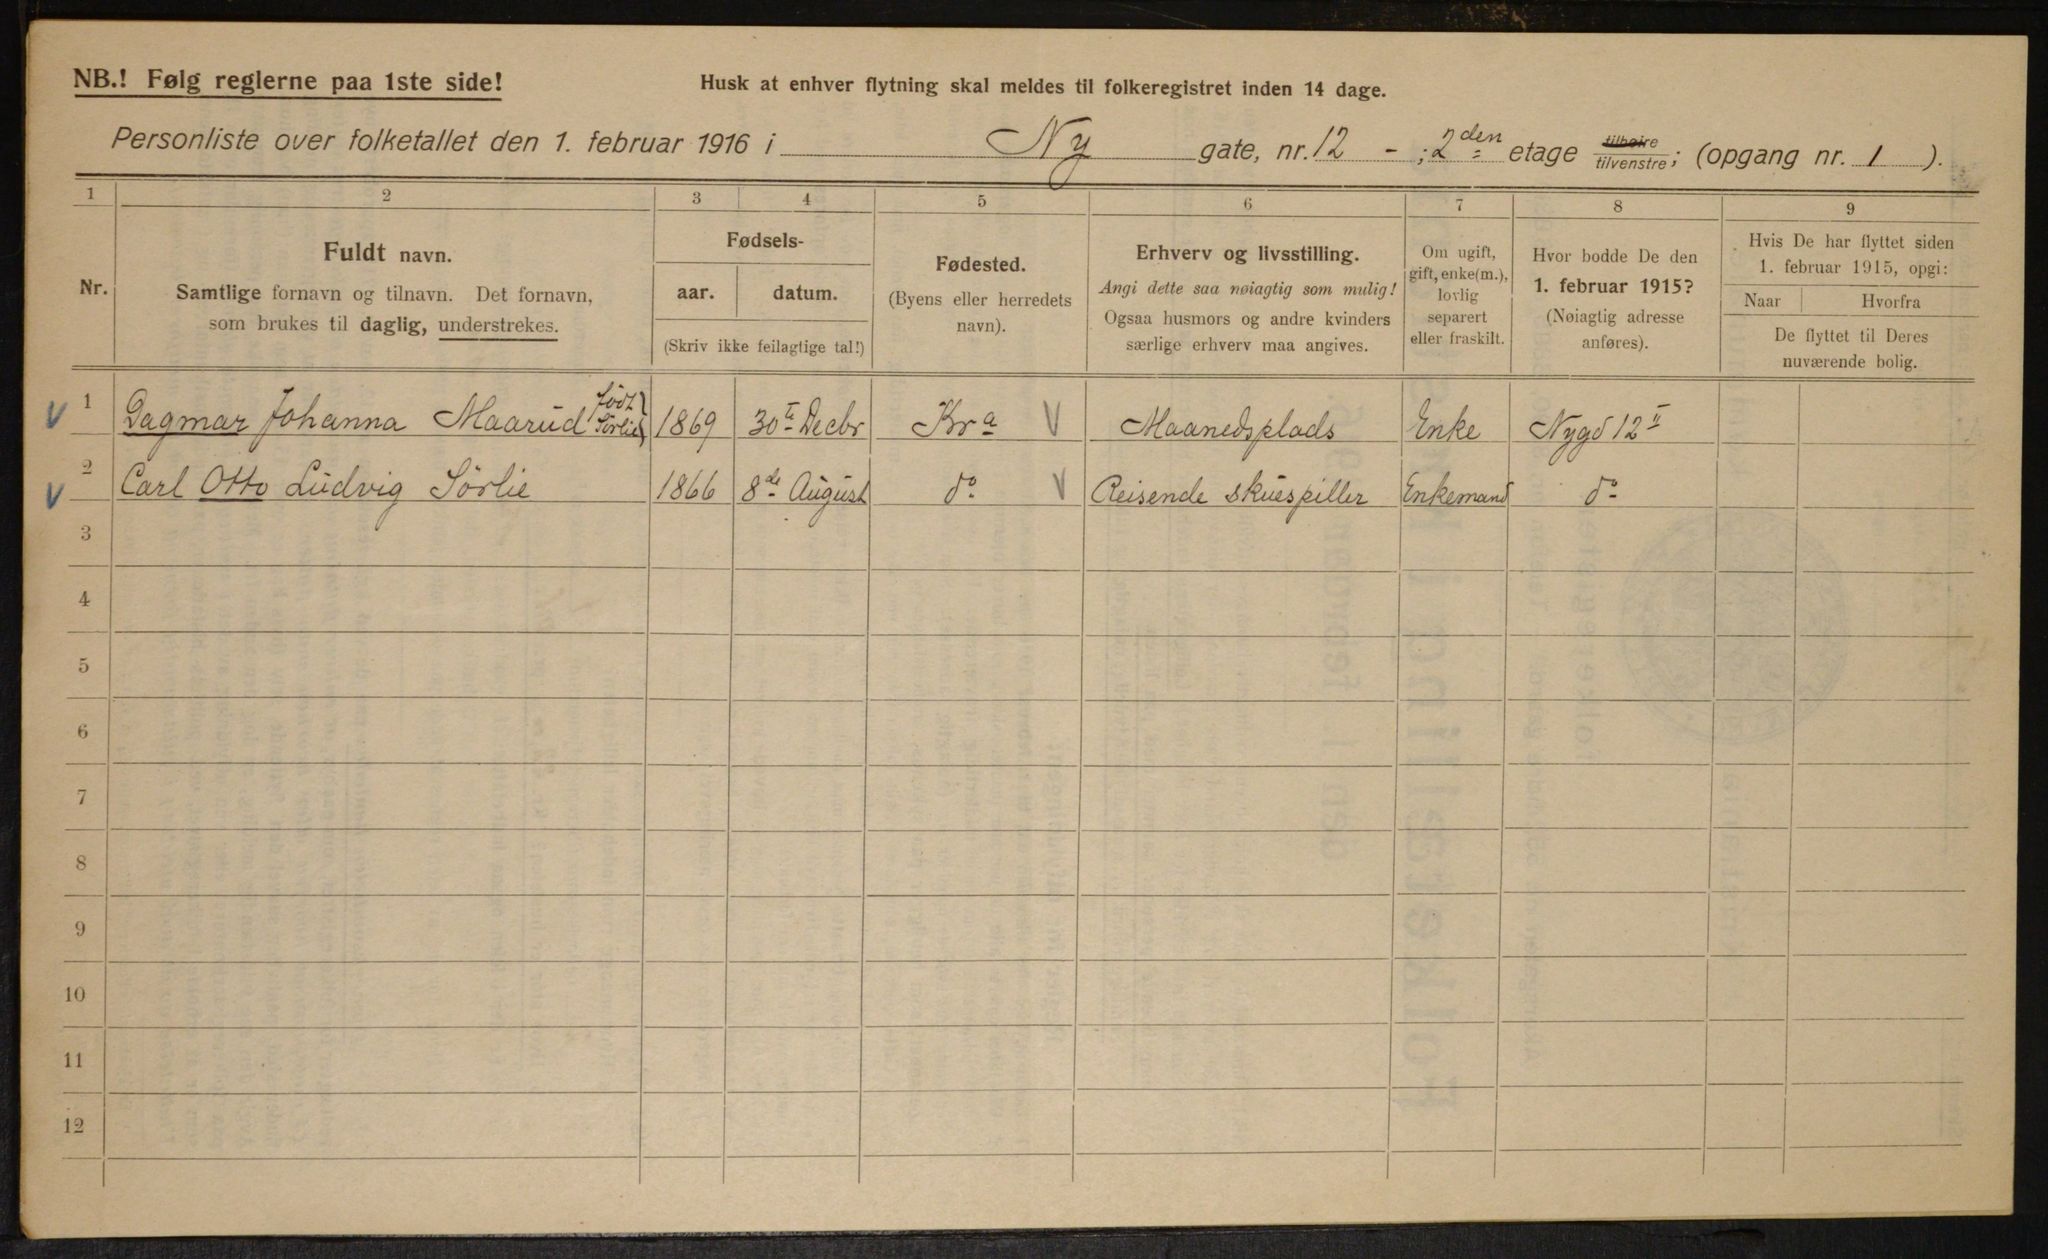 NB.! Følg reglerne paa 1ste side!
Husk at enhver flytning skal meldes til folkeregistret inden 14 dage.
Personliste over folketallet den 1. februar 1916 i Ny gate, nr. 12 - ; 2den etage tilhøire tilvenstre; (opgang nr. 1 ).
1 2 3 4 5 6 7 8 9
Nr.
Fuldt navn.
Samtlige fornavn og tilnavn. Det fornavn,
som brukes til daglig, understrekes.
Fødsels-
aar. datum.
(Skriv ikke feilagtige tal!)
Fødested.
(Byens eller herredets
navn).
Erhverv og livsstilling.
Angi dette saa nøiagtig som mulig!
Ogsaa husmors og andre kvinders
særlige erhverv maa angives.
Om ugift,
gift, enke(m.),
lovlig
separert
eller fraskilt.
Hvor bodde De den
1. februar 1915?
(Nøiagtig adresse
anføres).
Hvis De har flyttet siden
1. februar 1915, opgi:
Naar Hvorfra
De flyttet til Deres
nuværende bolig.
1 Dagmar Johanna Maarud født Sörlie 1869 30te Decbr Kra Maanedsplads Enke Nygd 12 II
2 Carl Otto Ludvig Sörlie 1866 8de August do Reisende skuespiller Enkemand do
3
4
5
6
7
8
9
10
11
12